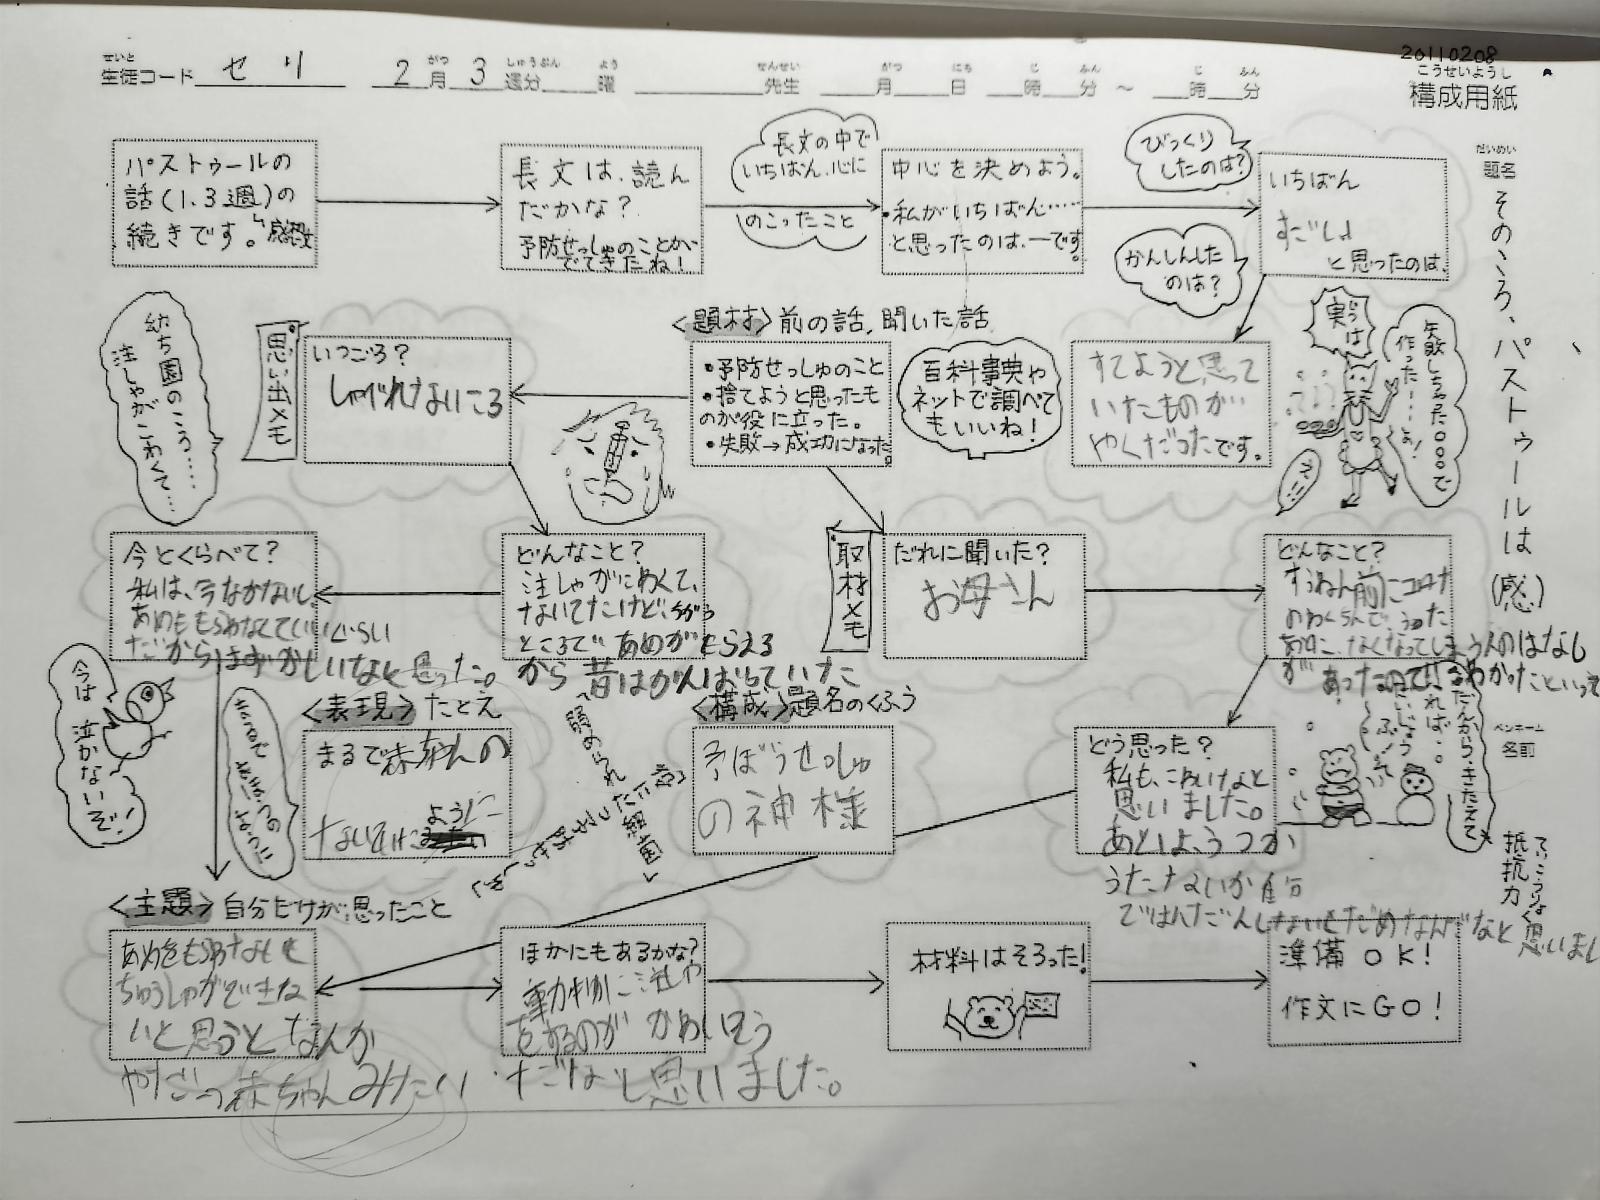 20110208
こうせいようし
構成用紙
せいと
生徒コード セリ
がつ しゅうぶん よう
2月3週分 曜
せんせい がつ にち じ ふん じ ふん
先生 月 日 時 分 ～ 時 分
だいめい
題名
そのころ、パストゥールは(感)
ペンネーム
名前
パストゥールの
話(1.3週)の
続きです。
感想文
長文は、読ん
だかな?
予防せっしゅのことが
でてきたね!
長文の中で
いちばん、心に
のこったこと
中心を決めよう。
・私がいちばん……
と思ったのは、ーです。
びっくり
したのは?
かんしんした
のは?
いちばん
すごいな
と思ったのは、
すてようと思って
いたものが
やくだったです。
実は
失敗しちゃった○○○で
作った…よ!
<題材>前の話,聞いた話
・予防せっしゅのこと
・捨てようと思ったも
のが役に立った。
・失敗→成功になった。
百科事典や
ネットで調べて
もいいね!
思い出メモ
いつごろ?
しゃべれないころ
幼ち園のころ……
注しゃがこわくて…
どんなこと?
注しゃがこわくて、
ないてたけど、
ところで あめがもらえる
から 昔はがんばっていた
今とくらべて?
私は、今なかないし、
あめももらわなくていいぐらい
だからはずかしいなと思った。
今は
泣かないぞ!
取材メモ
だれに聞いた?
お母さん
どんなこと?
すうねん前にコロナ
のわくちんで、うった
あとに、なくなってしまう人のはなし
が あったので
どう思った?
私も、こわいなと
思いました。
あとは、うつか
うたないか自分
ではんだんしないとだめなんだなと思いまし
ていこうりょく
抵抗力
<表現>たとえ
まるで赤ちゃんの
ように
ないて
<構成>題名のくふう
予ぼうせっしゅ
の神様
<主題>自分だけが思ったこと
あめをもらわないと
ちゅうしゃができな
いと思うとなんか
やだ 赤ちゃんみたい
ほかにもあるかな?
動物に注しゃ
をするのが かわいそう
だなと思いました。
材料はそろった!
準備OK!
作文にGO!